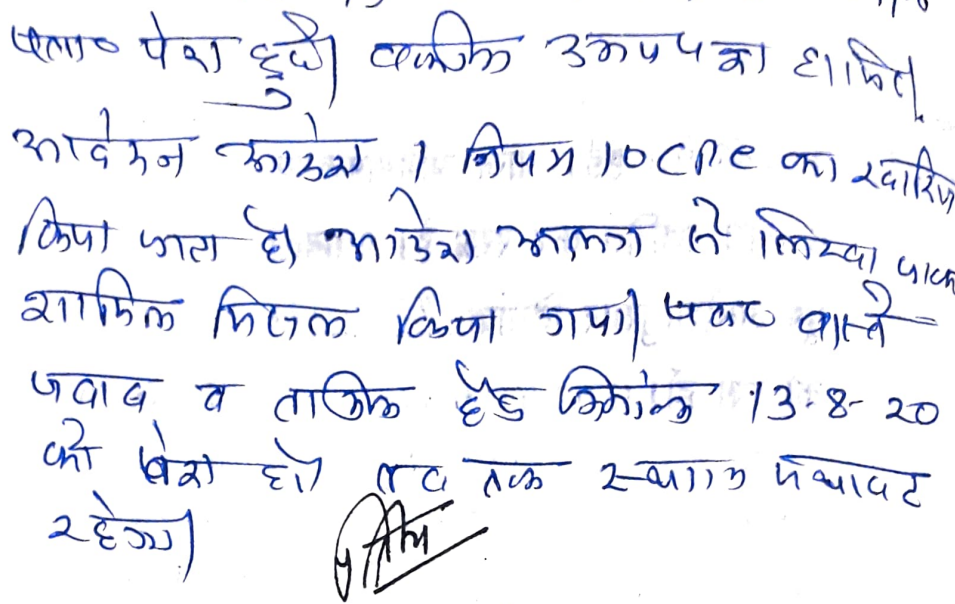 पत्रा० पेश हुई। वकील उभयपक्ष हाजिर।
आवेदन आदेश 1 नियम 10 CPC का खारिज
किया जाता है। आदेश अलग से लिखा जाकर
शामिल मिसल किया गया। पत्रा० वास्ते
जवाब व तामिल हेतु दिनांक 13-8-20
को पेश हो। तब तक स्थगन यथावत
रहेगा।